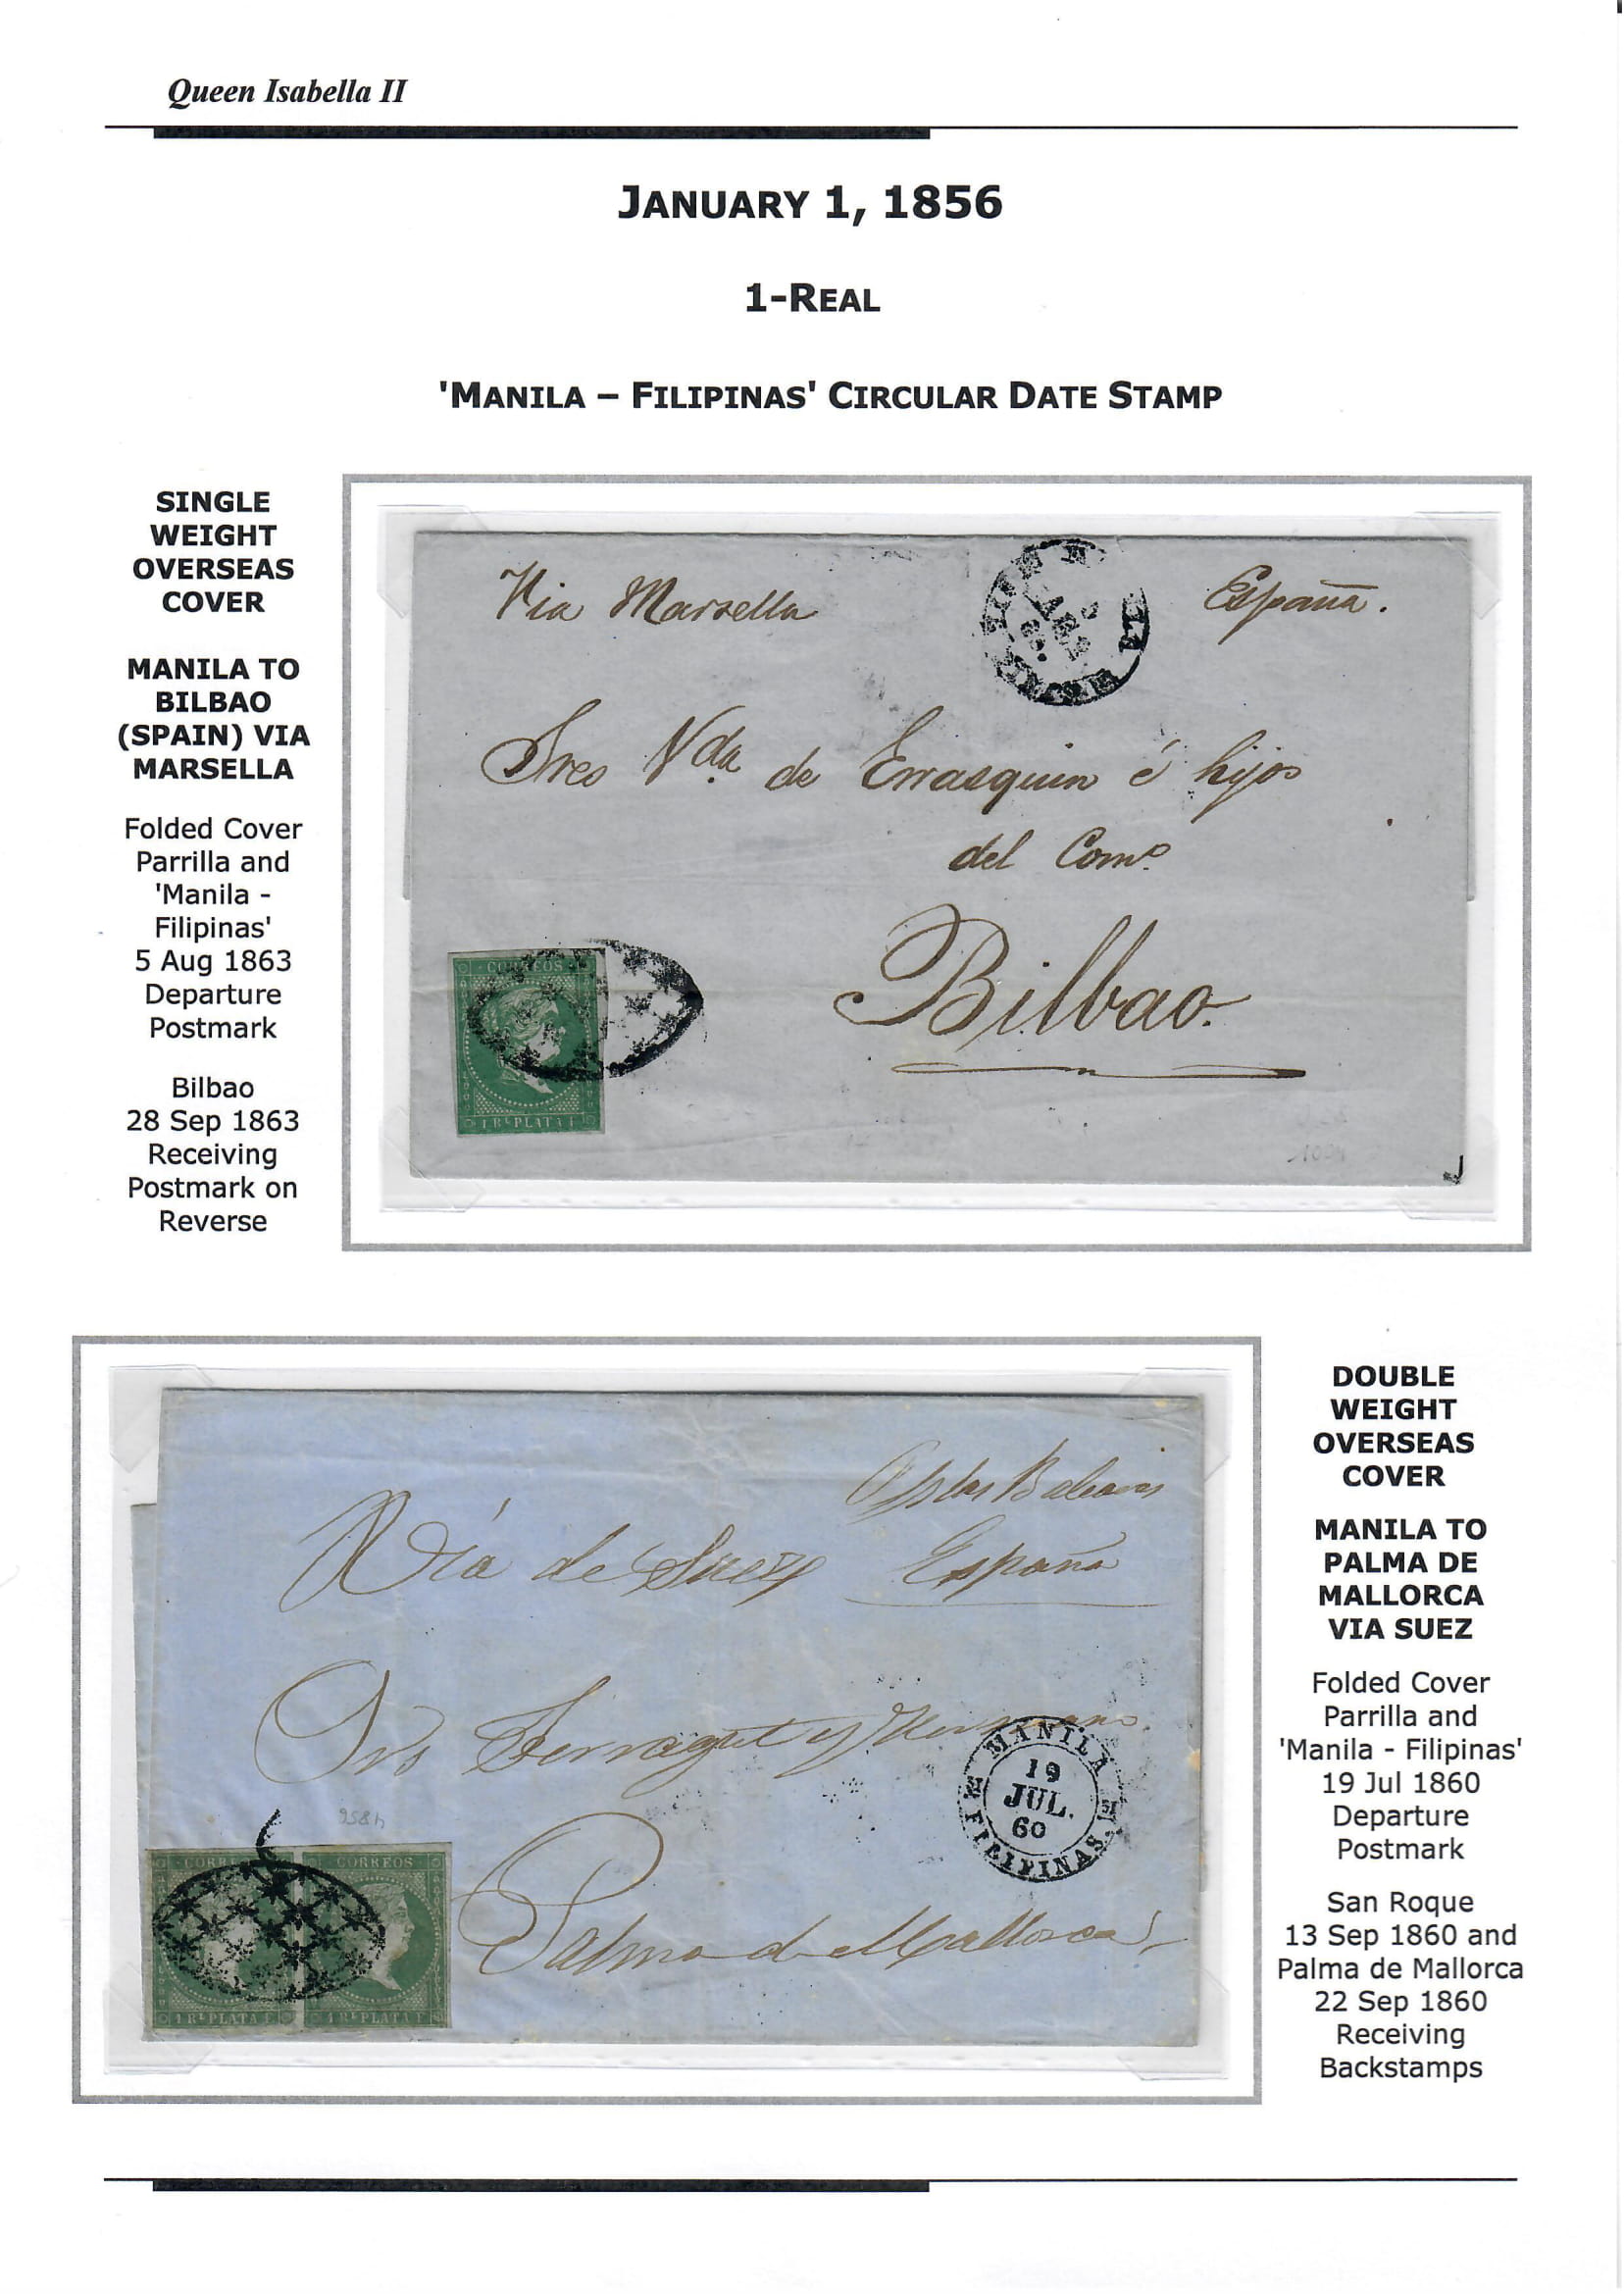 Queen Isabella II
JANUARY 1, 1856
1-REAL
'MANILA – FILIPINAS' CIRCULAR DATE STAMP
SINGLE
WEIGHT
OVERSEAS
COVER
MANILA TO
BILBAO
(SPAIN) VIA
MARSELLA
Folded Cover
Parrilla and
'Manila -
Filipinas'
5 Aug 1863
Departure
Postmark
Bilbao
28 Sep 1863
Receiving
Postmark on
Reverse
Via Marsella
España.
Sres Vda de Errasquin é hijos
del Como
Bilbao.
CORREOS
1 Rl PLATA F
DOUBLE
WEIGHT
OVERSEAS
COVER
MANILA TO
PALMA DE
MALLORCA
VIA SUEZ
Folded Cover
Parrilla and
'Manila - Filipinas'
19 Jul 1860
Departure
Postmark
San Roque
13 Sep 1860 and
Palma de Mallorca
22 Sep 1860
Receiving
Backstamps
Yslas Baleares
Via de Suez España
Srs Ferragut y Hermano
MANILA
19
JUL.
60
FILIPINAS.
Palma de Mallorca
CORREOS
1 Rl PLATA F
1 Rl PLATA F